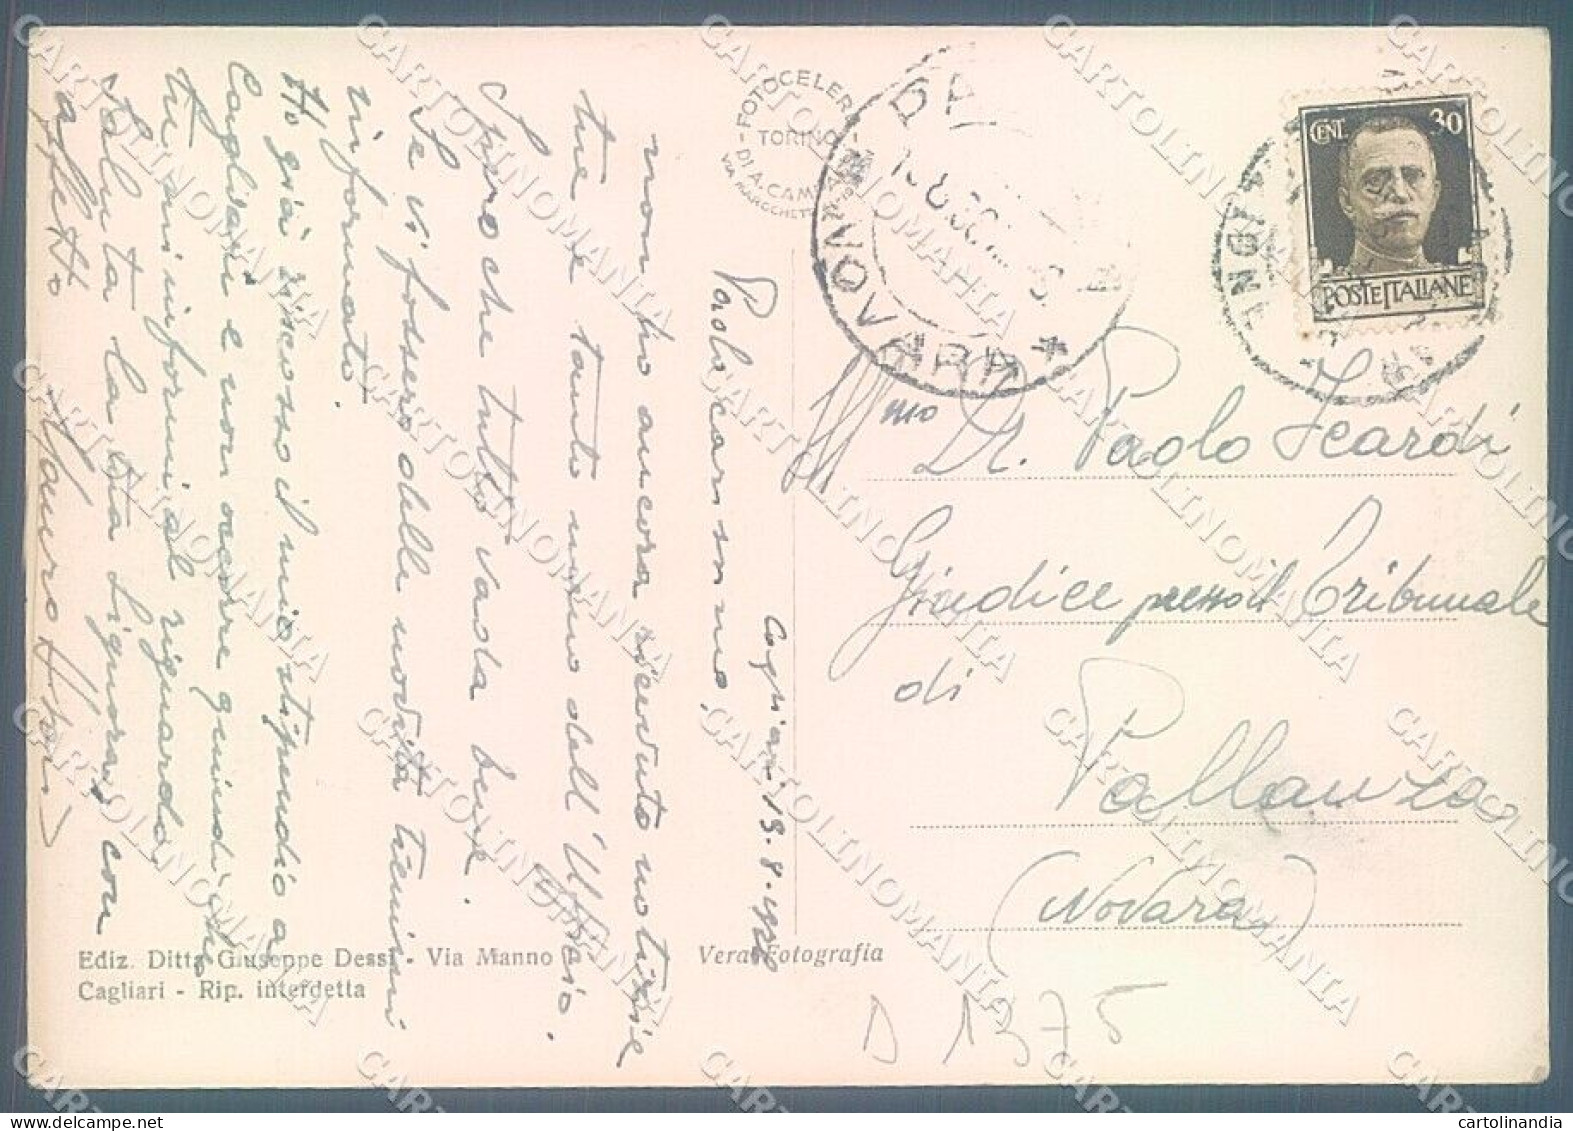 Cagliari 19.8.1936
Paolo carissimo,
non ho ancora ricevuto notizie
tue tanto meno dell'Ufficio.
Spero che tutto vada bene.
Se vi fossero delle novità tienimi
informato.
Ho già riscosso il mio stipendio a
Cagliari e non occorre quindi che
tu mi informi al riguardo.
Saluta la tua Signora, con
affetto
Mauro
FOTOCELERE
TORINO
DI A. CAMP
* NOVARA *
CENT. 30
POSTE ITALIANE
Ill mo Dr. Paolo Icardi
Giudice presso il Tribunale
di
Pallanza
(Novara)
Ediz. Ditta Giuseppe Dessì - Via Manno
Cagliari - Rip. interdetta
Vera Fotografia
D 1375
CARTOLINOMANIA
cartolinandia